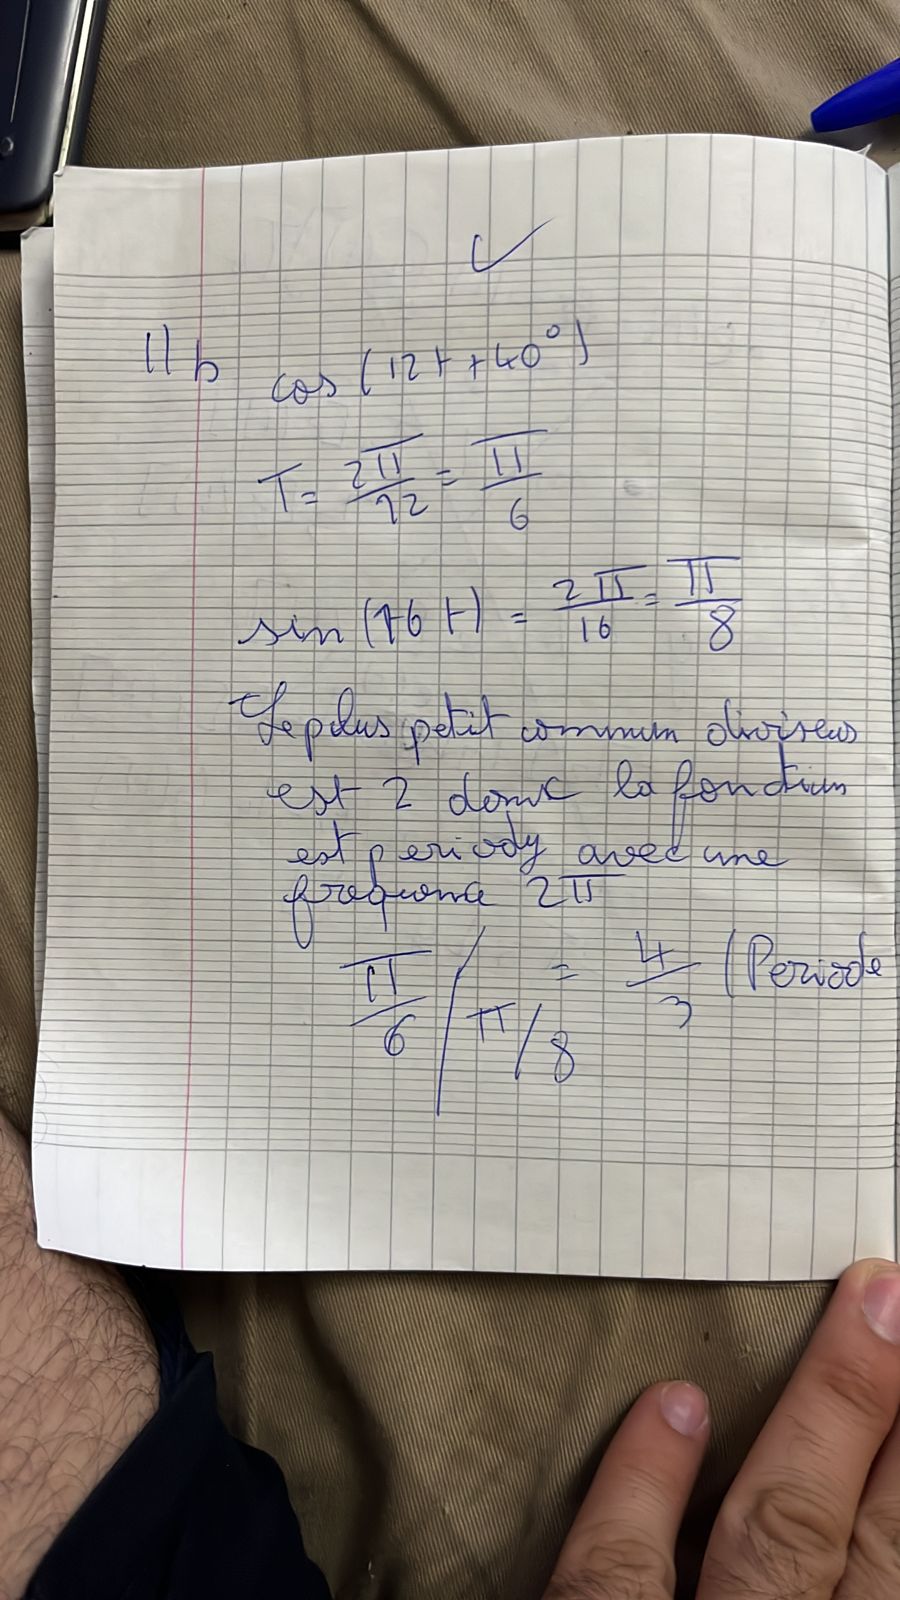 11 b cos (12t + 40°)
T = 2π/12 = π/6
sin (16 t) = 2π/16 = π/8
Le plus petit commun diviseur
est 2 donc la fonction
est periody avec une
frequence 2π
π/6 / π/8 = 4/3 (Periode